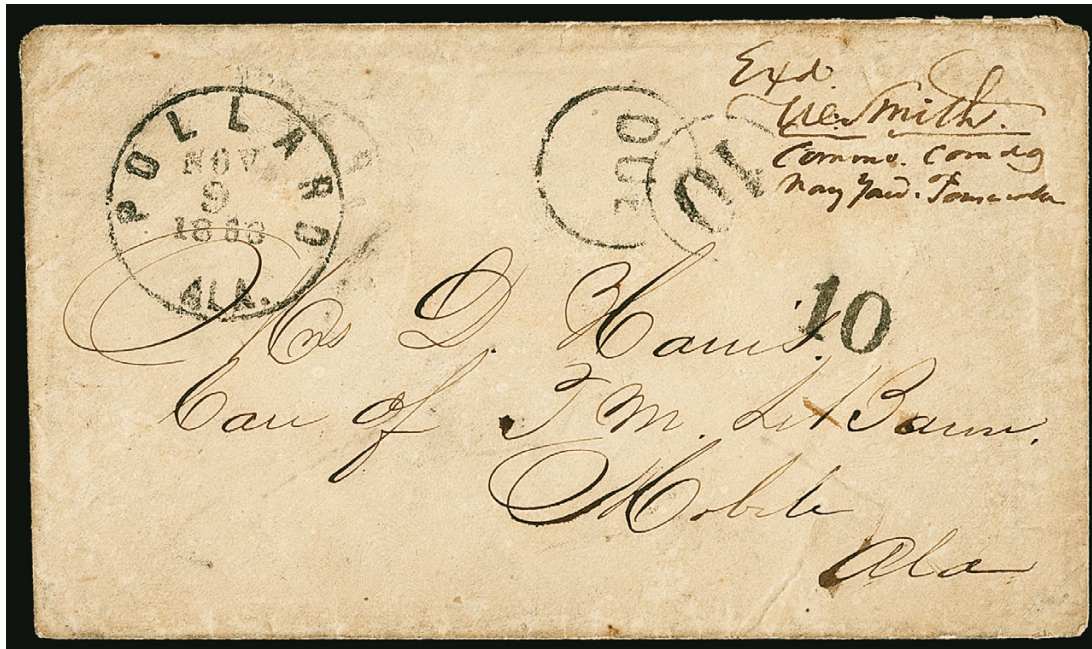 POLLARD
NOV
9
1863
ALA.
DUE
10
Exd.
Smith.
Commo. Comdg
Navy Yard. Pensacola
10
Mrs D. Harris.
Care of T M. LeBaron.
Mobile
Ala